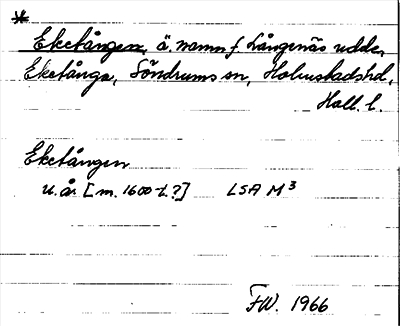 *
Eketången, ä. namn f. Långenäs udde,
Eketånga, Söndrums sn, Halmstads hd,
Hall. l.
Eketången
u. å. [m. 1600-t.?] LSA M³
FW. 1966